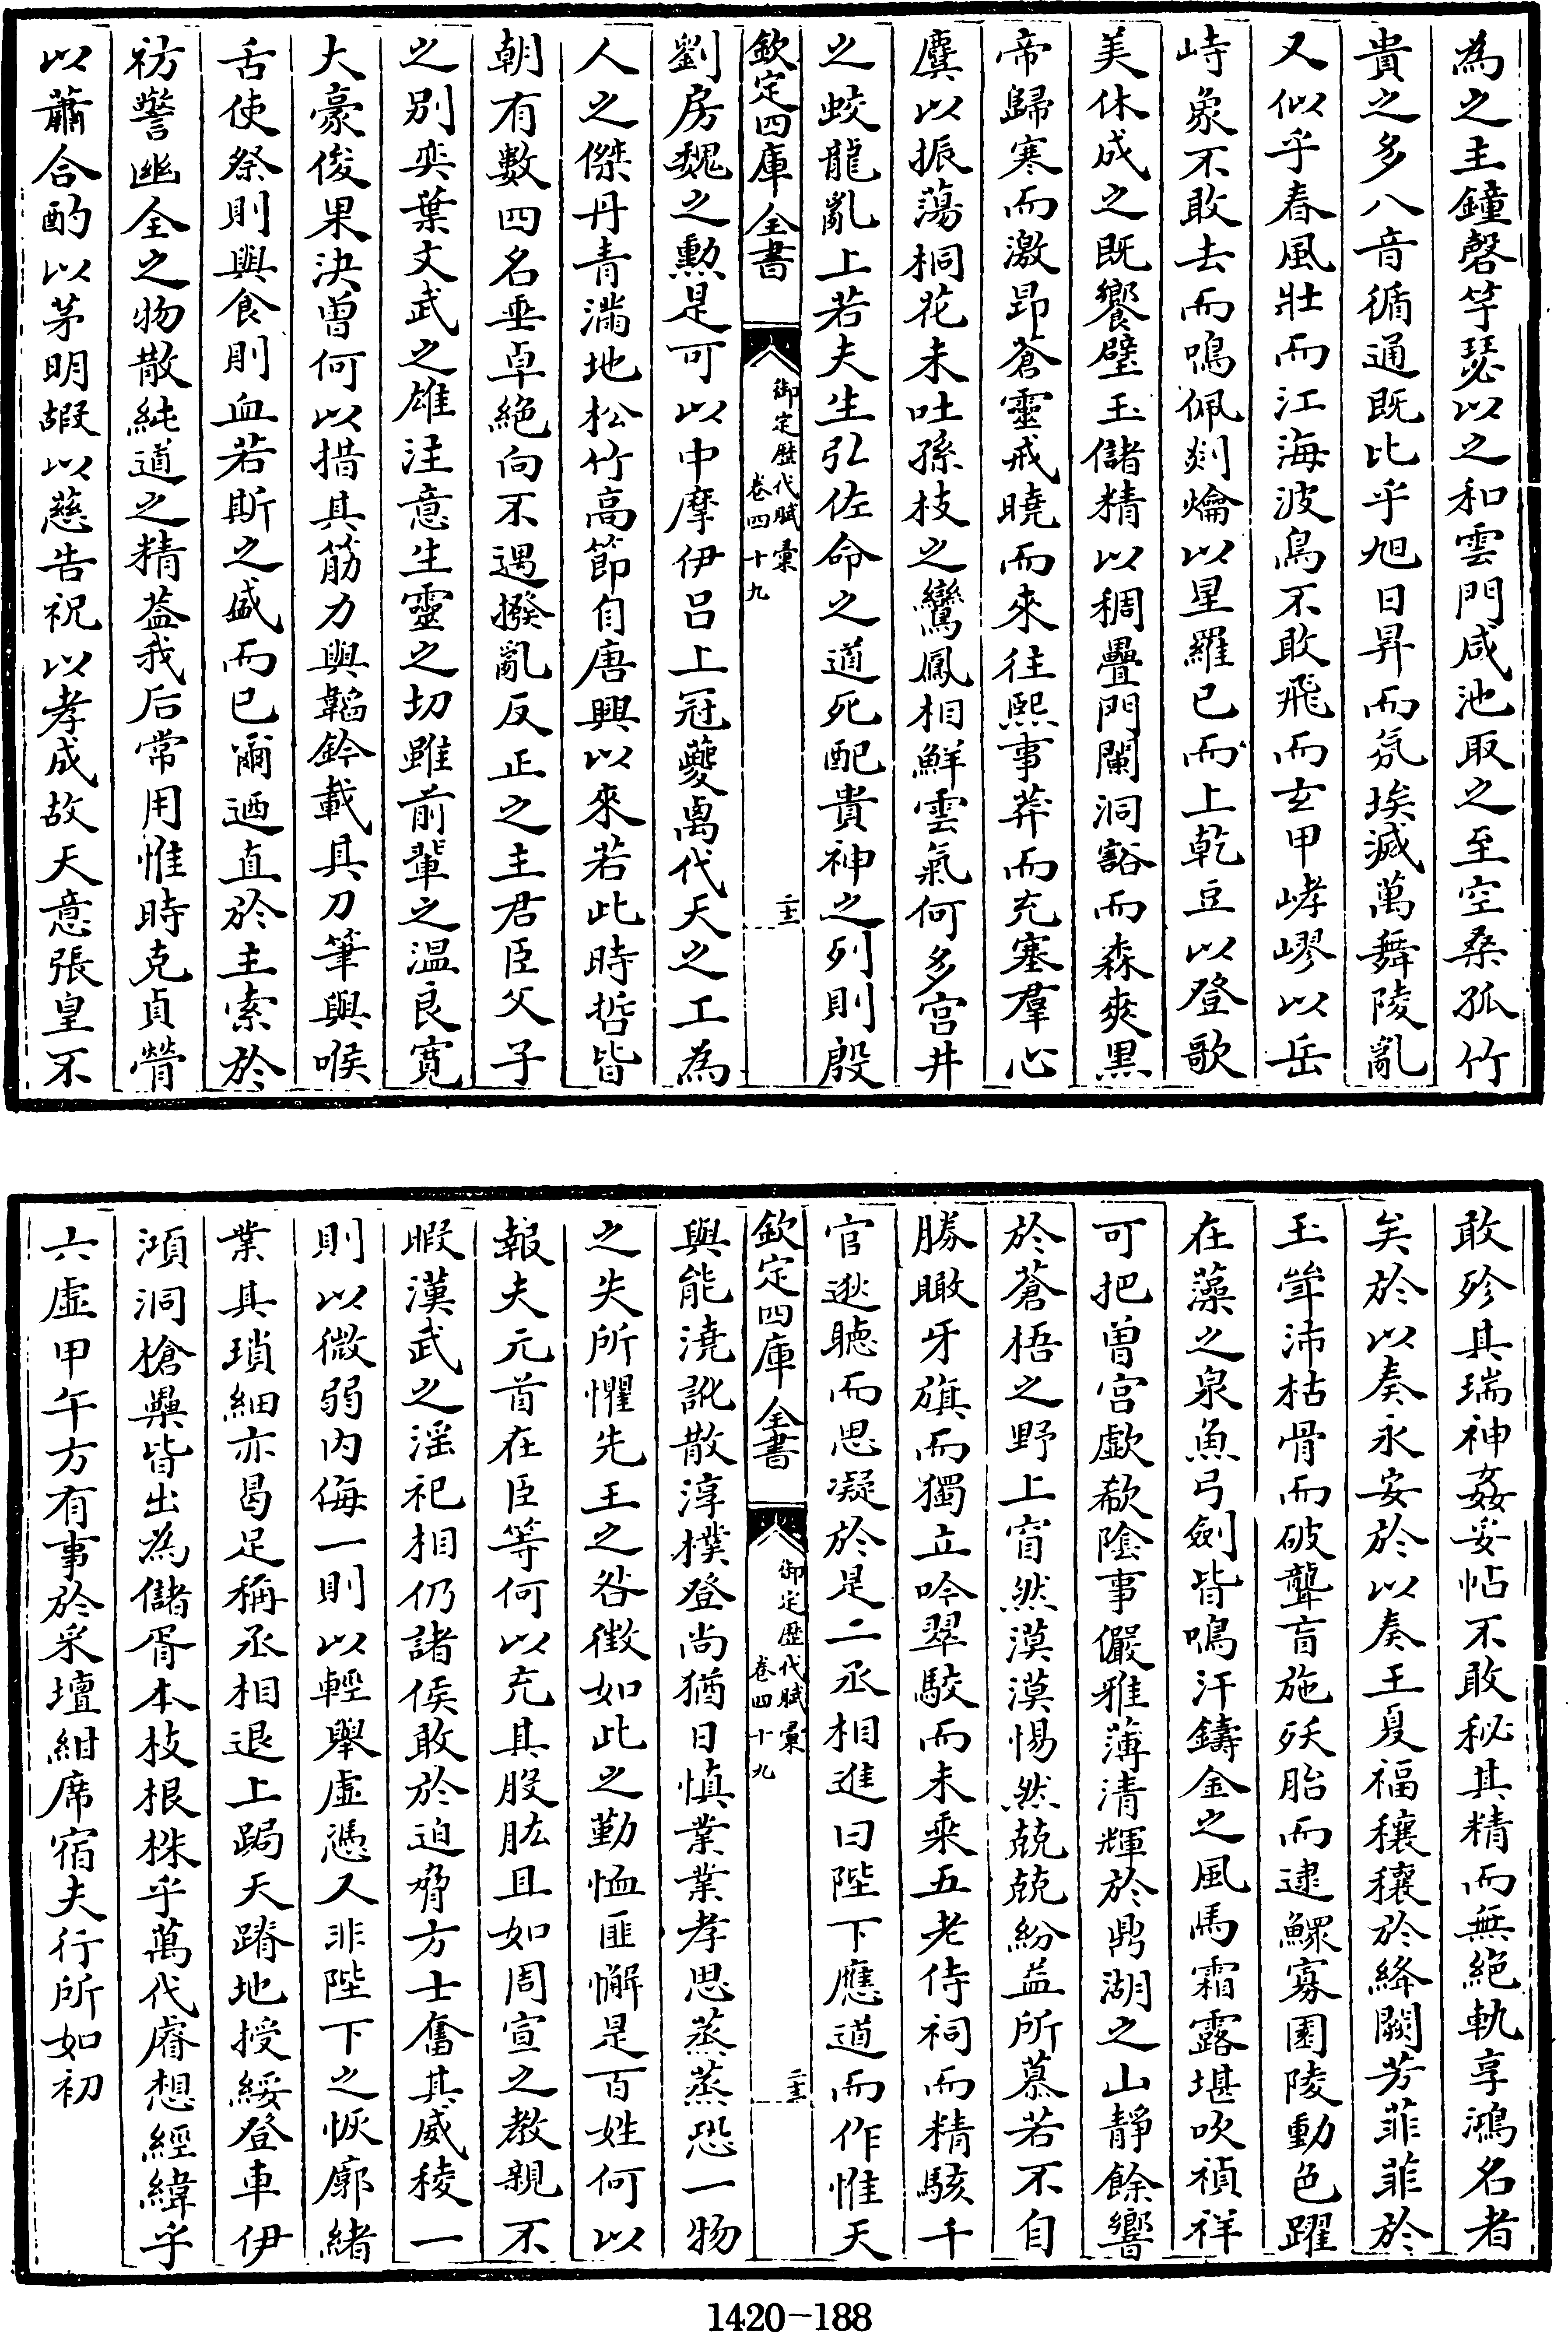 為之主鐘磬竽瑟以之和雲門咸池取之至空桑孤竹
貴之多八音循通既比乎旭日昇而氛埃滅萬舞陵亂
又似乎春風壯而江海波鳥不敢飛而玄甲崢嶸以岳
峙象不敢去而鳴佩剡爚以星羅已而上乾豆以登歌
美休成之既饗璧玉儲精以稠疊門闌洞豁而森爽黑
帝歸寒而激昻蒼靈戒曉而來往熙事莽而充塞羣心
廙以振蕩桐花未吐孫枝之鸞鳳相鮮雲氣何多宮井
之蛟龍亂上若夫生弘佐命之道死配貴神之列則殷
欽定四庫全書
御定歴代賦彙
卷四十九
劉房魏之勲是可以中摩伊吕上冠夔卨代天之工為
人之傑丹青滿地松竹高節自唐興以來若此時哲皆
朝有數四名垂卓絕向不遇撥亂反正之主君臣父子
之别奕葉文武之雄注意生靈之切雖前輩之温良寛
大豪俊果決曽何以措其筋力與韜鈐載其刀筆與喉
舌使祭則與食則血若斯之盛而已爾迺直於主索於
祊警幽全之物散純道之精葢我后常用惟時克貞膋
以蕭合酌以茅明嘏以慈告祝以孝成故天意張皇不
敢殄其瑞神姦妥帖不敢秘其精而無絶軌享鴻名者
矣於以奏永安於以奏王夏福穰穰於絳闕芳菲菲於
玉斝沛枯骨而破聾盲施殀胎而逮鰥寡園陵動色躍
在藻之泉魚弓劍皆鳴汗鑄金之風馬霜露堪吹禎祥
可把曽宫歔欷陰事儼雅薄清輝於鼎湖之山静餘響
於蒼梧之野上窅然漠漠惕然兢兢紛益所慕若不自
勝瞰牙旗而獨立吟翠駮而未乘五老侍祠而精駭千
官逖聽而思凝於是二丞相進曰陛下應道而作惟天
欽定四庫全書
御定歴代賦彙
卷四十九
與能澆訛散淳樸登尚猶日慎業業孝思蒸蒸恐一物
之失所懼先王之咎徴如此之勤恤匪懈是百姓何以
報夫元首在臣等何以充其股肱且如周宣之教親不
暇漢武之滛祀相仍諸侯敢於迫脅方士奮其威稜一
則以微弱内侮一則以輕舉虛憑又非陛下之恢廓緒
業其瑣細亦曷足稱丞相退上跼天蹐地授綏登車伊
澒洞槍櫐皆出為儲胥本枝根株乎萬代睿想經緯乎
六虛甲午方有事於采壇紺席宿夫行所如初
1420-188